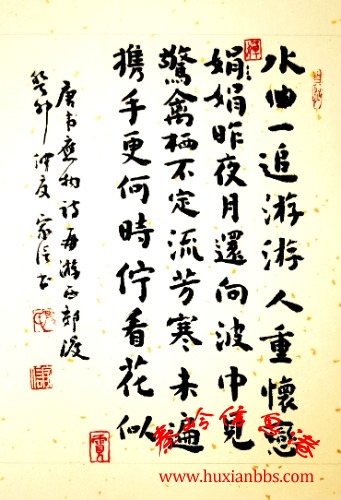 水曲一追游游人重懷戀
娟娟昨夜月還向波中見
驚禽栖不定流芳寒未遍
携手更何時佇看花似
唐韋應物詩再游西郊渡
癸卯仲夏家書
www.huxianbbs.com